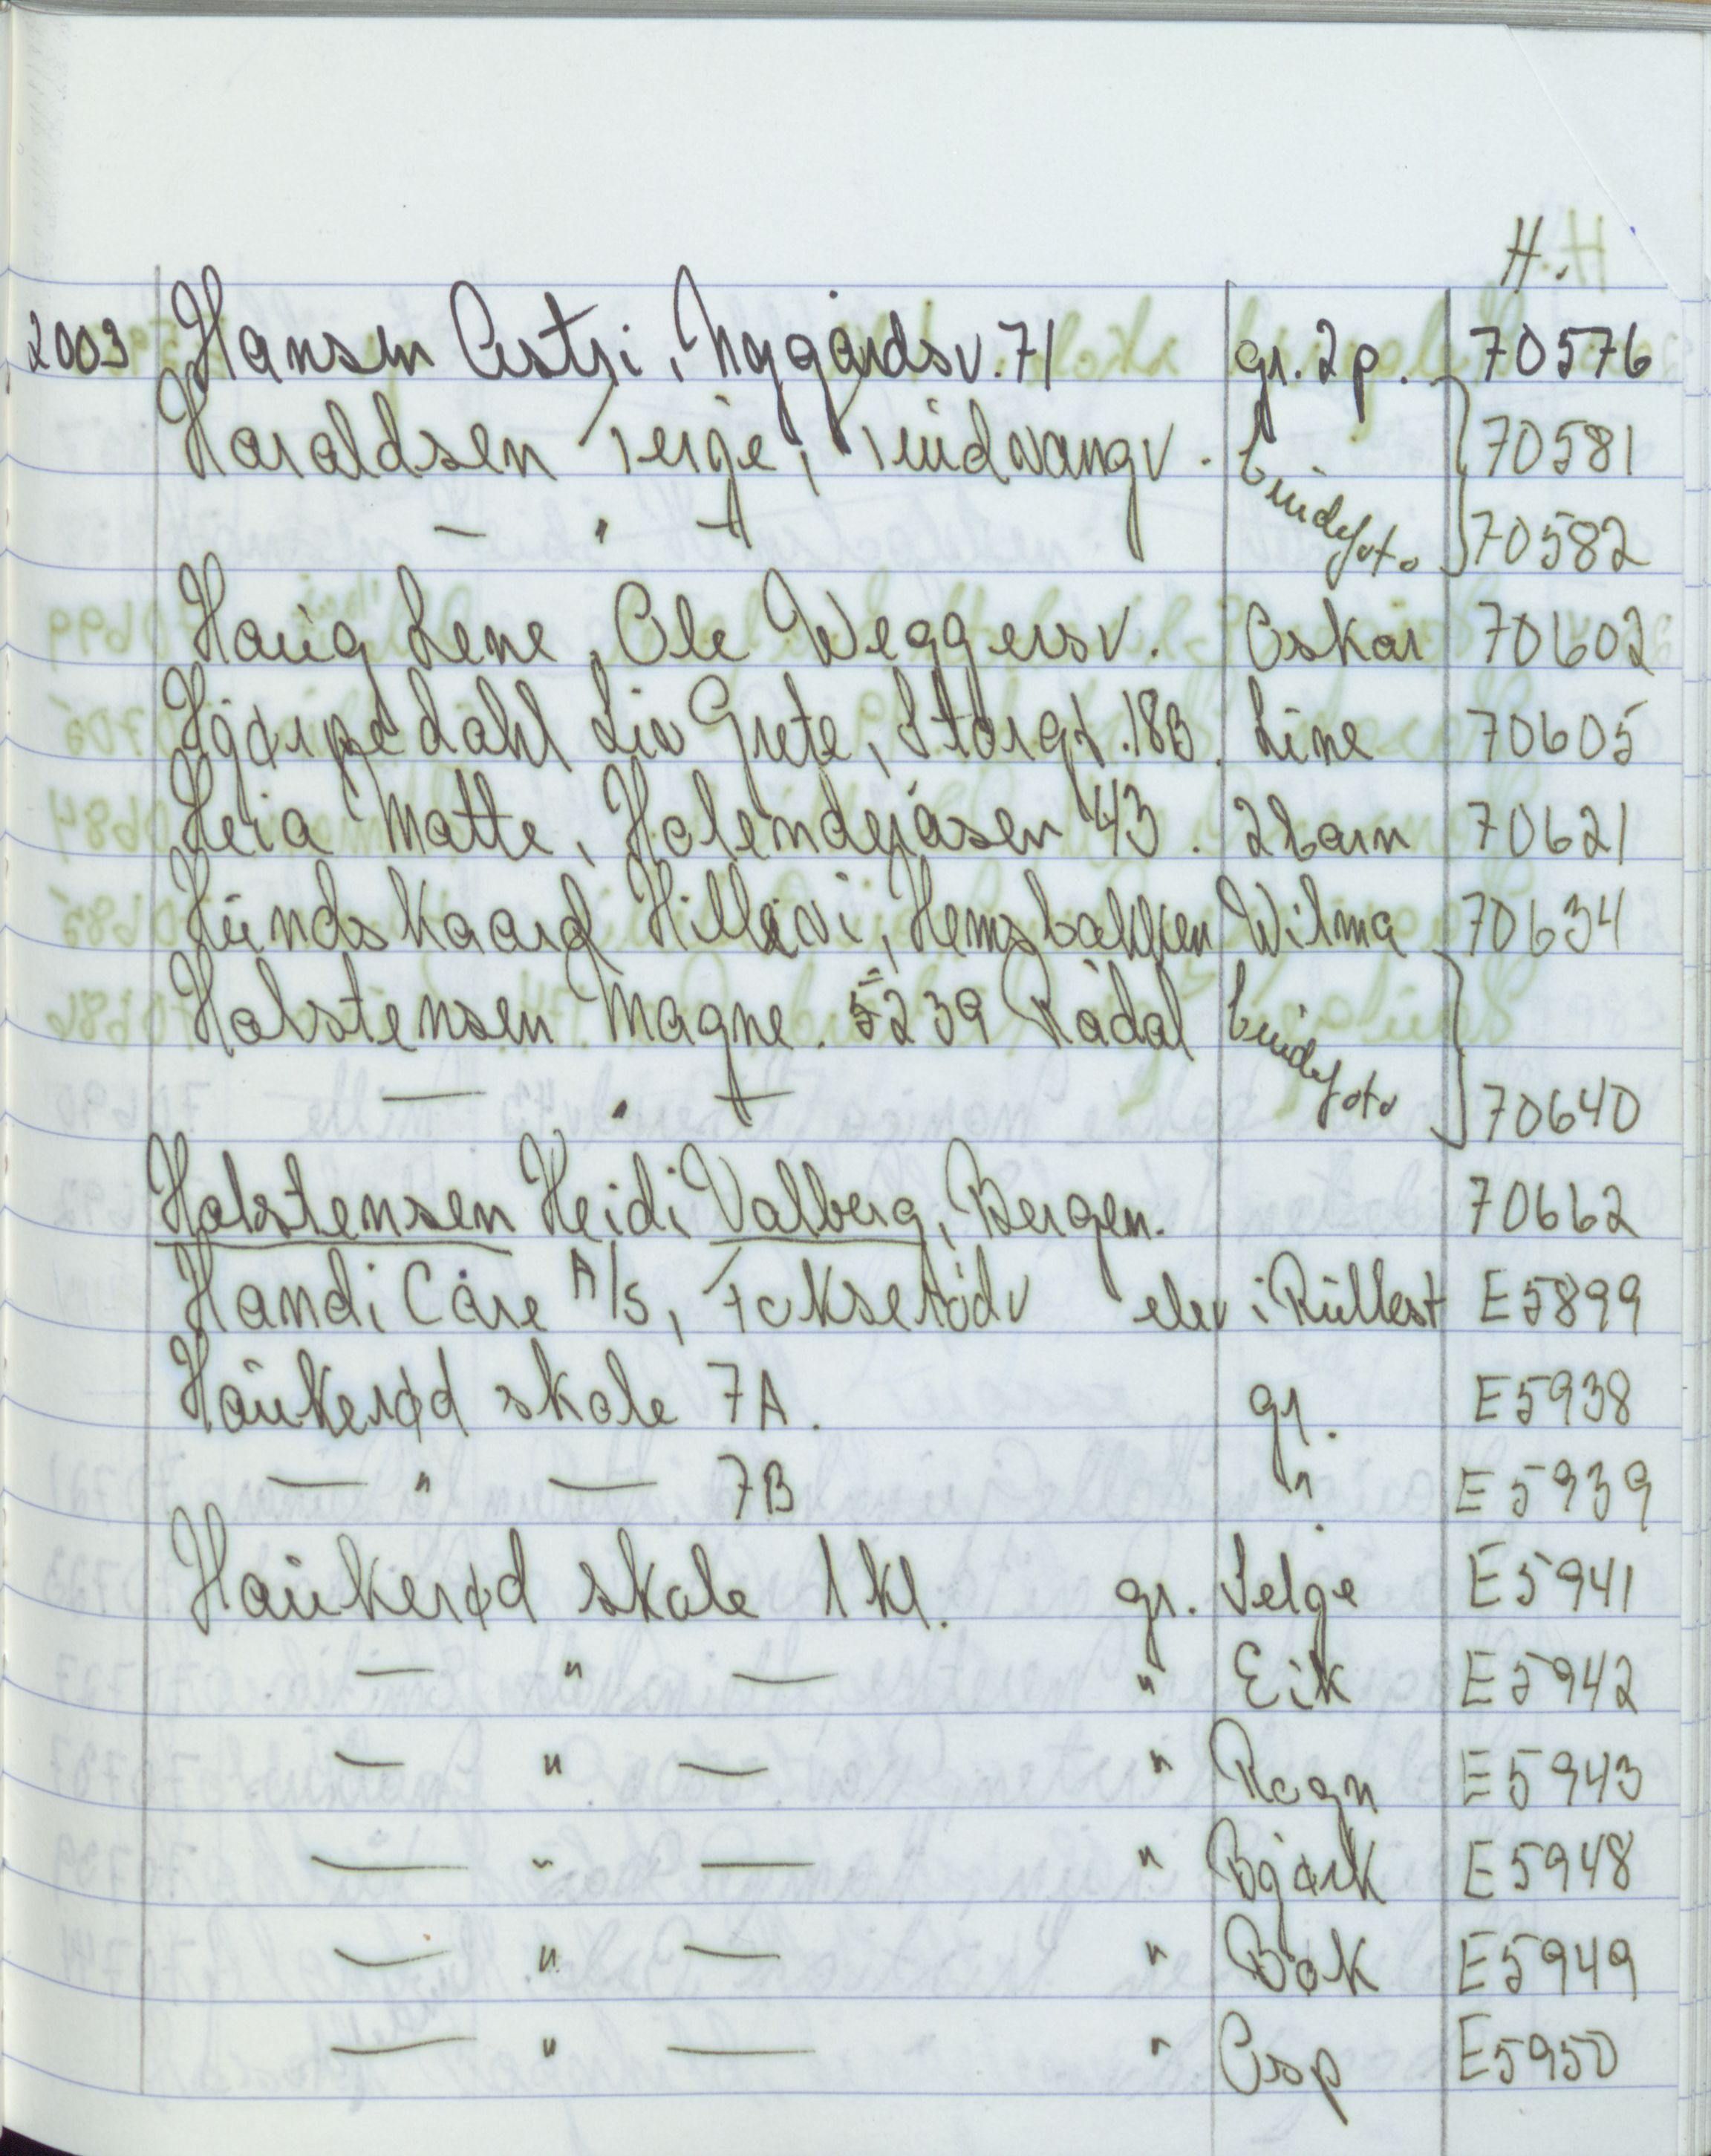 H.
2003 Hansen Astri, Nygårdsv. 71 gr. 2 p. 70576
Haraldsen Terje, Lindvangv. brudefoto 70581
— " — 70582
Haug Lene, Ole Weggersv. Oskar 70602
Hjørpedahl Liv Grete, Storgt. 183. Line 70605
Heia Mette, Holendejåsen 43. 2 barn 70621
Hundskaard Hillevi, Hemsbakken Wilma 70634
Holstensen Magne. 5239 Rådal brudefoto
— " — 70640
Holstensen Heidi Valberg, Bergen. 70662
Handi Care A/S, Fokserødv elev i Rullest E5899
Haukerød skole 7A. gr. E5938
— " — 7B " E5939
Haukerød skole 1 kl. gr. Selje E5941
— " — " Eik E5942
— " — " Rogn E5943
— " — " Bjørk E5948
— " — " Bøk E5949
— " — " Osp E5950